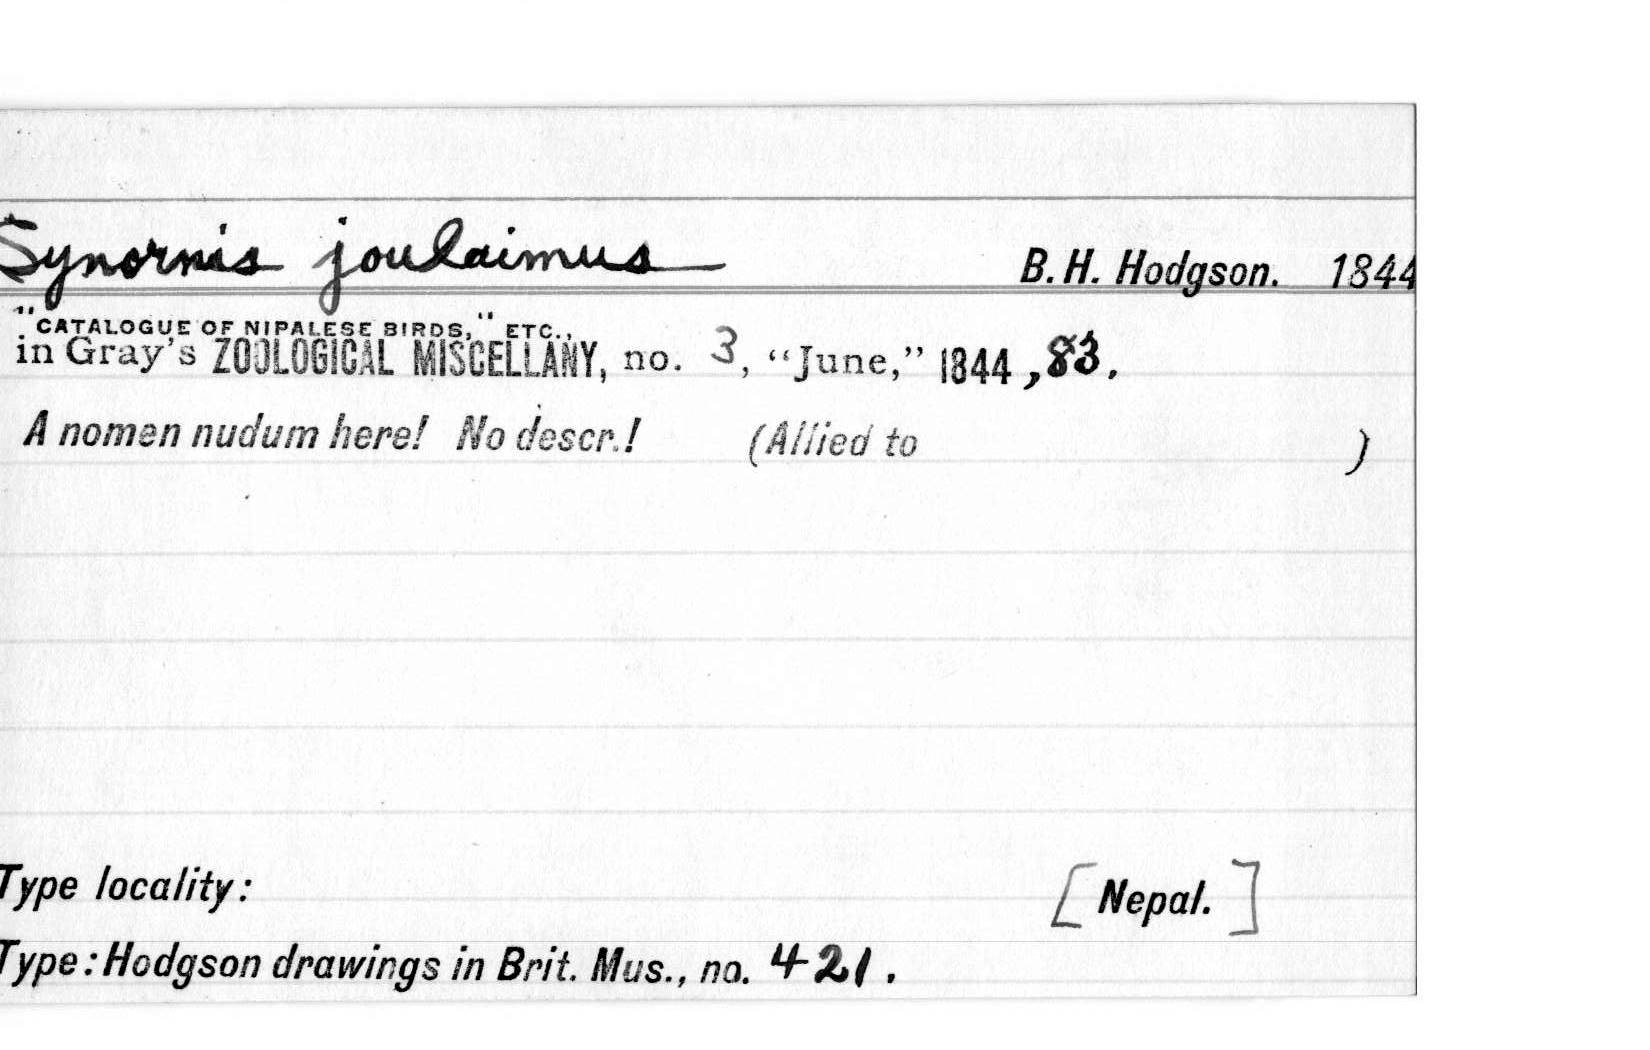 Synornis joulaimus B. H. Hodgson. 1844
"CATALOGUE OF NIPALESE BIRDS," ETC.,
in Gray's ZOOLOGICAL MISCELLANY, no. 3, "June," 1844, 83.
A nomen nudum here! No descr.! (Allied to )
Type locality: [Nepal.]
Type: Hodgson drawings in Brit. Mus., no. 421.